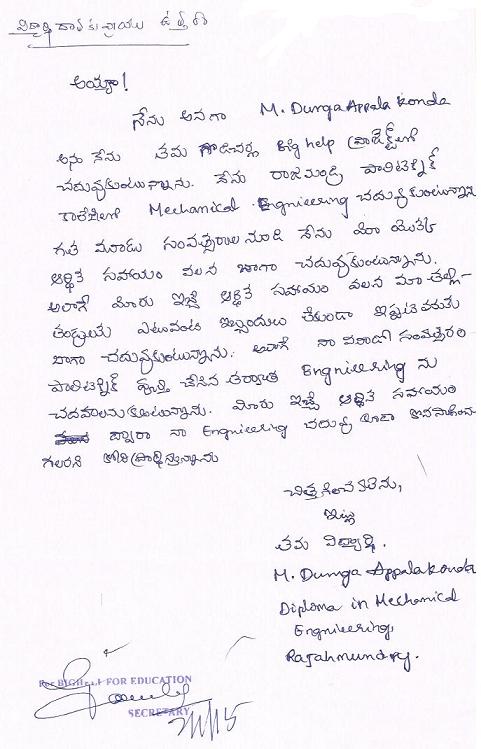 అయ్యా!
నేను అనగా M. Durga Appala Konda
అను నేను తమ Big help ప్రాజెక్ట్‌లో
చదువుకుంటున్నాను. నేను రాజమండ్రి పాలిటెక్నిక్
కాలేజీలో Mechanical Engnieering చదువుకుంటున్నాను
గత మూడు సంవత్సరాల నుండి నేను మీ యొక్క
ఆర్థిక సహాయం వలన బాగా చదువుకుంటున్నాను.
అలాగే మీరు ఇచ్చే ఆర్థిక సహాయం వలన మా తల్లి-
తండ్రులకు ఎటువంటి ఇబ్బందులు లేకుండా ఇప్పటి వరుకు
బాగా చదువుకుంటున్నాను. అలాగే నా మూడో సంవత్సరం
పాలిటెక్నిక్ పూర్తి చేసిన తర్వాత Engnieering ను
చదవాలనుకుంటున్నాను. మీరు ఇచ్చే ఆర్థిక సహాయం
ద్వారా నా Engnieering చదువు కూడా కొనసాగించ
గలరని కోరి ప్రార్థిస్తున్నాను
చిత్తగించవలెను,
ఇట్లు
తమ విద్యార్థి.
M. Durga Appalakonda
Diploma in Mechanical
Engnieering,
Rajahmundry.
For BIGHELP FOR EDUCATION
SECRETARY